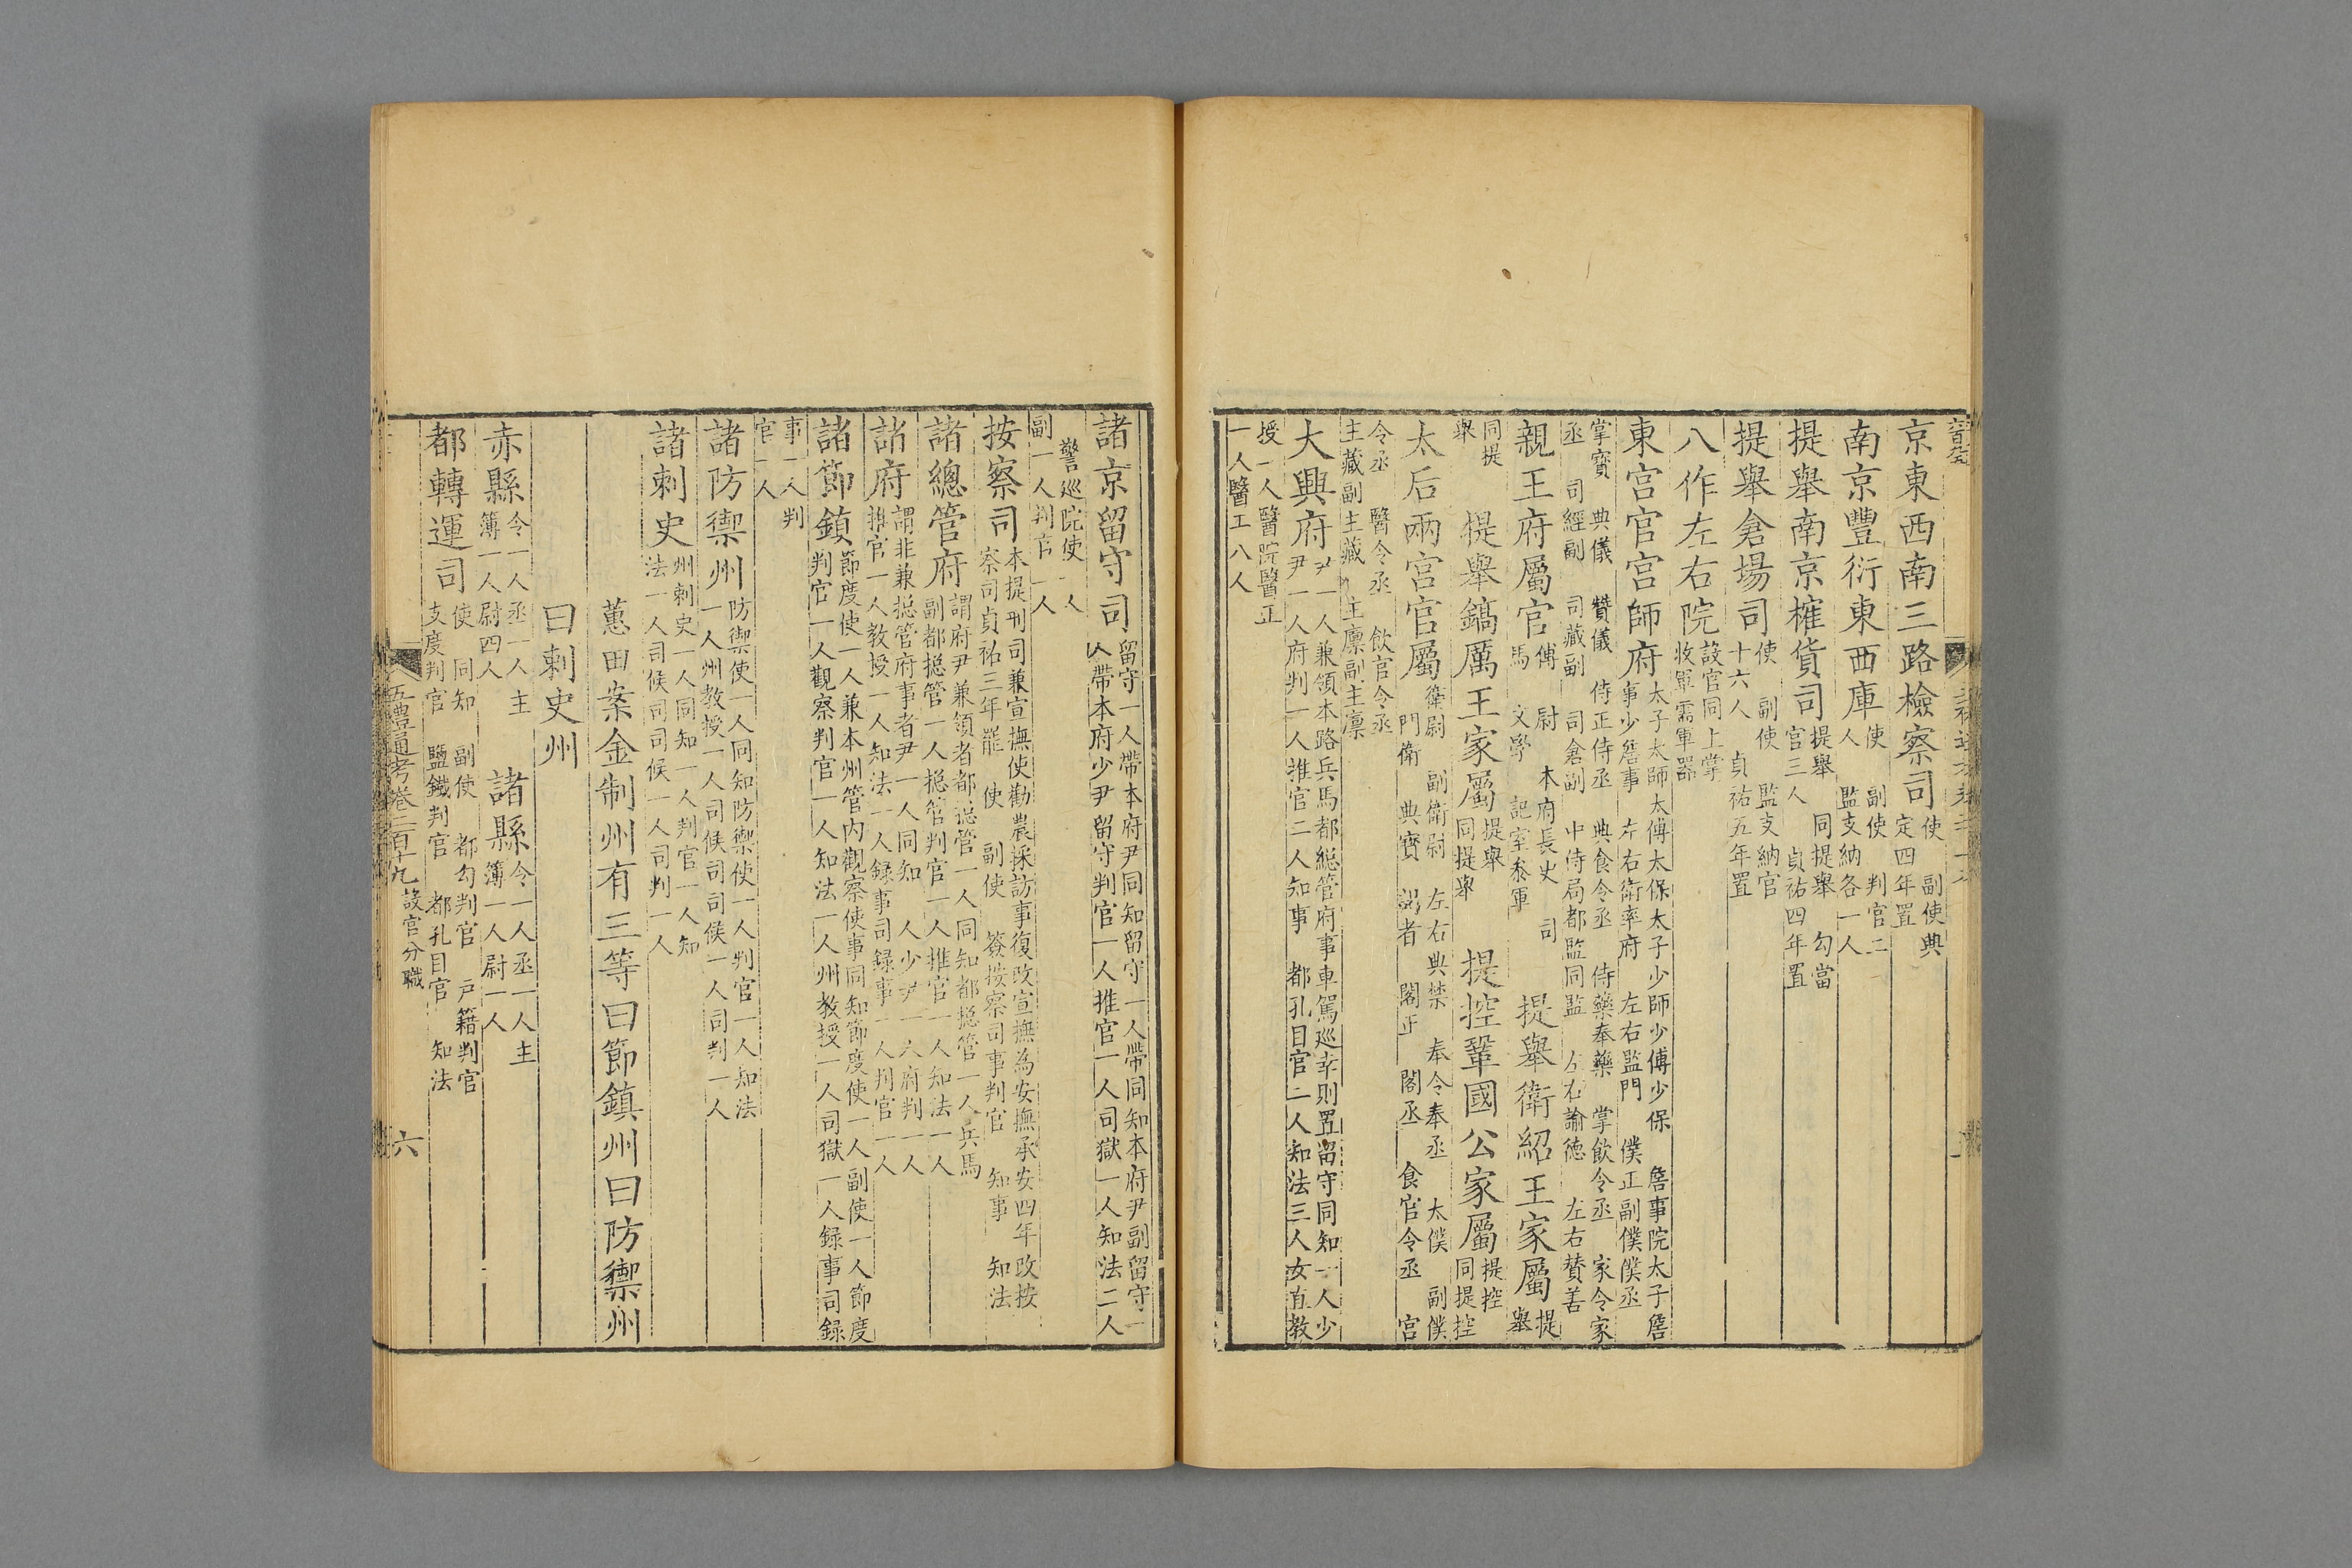 京東西南三路檢察司使 副使 典
定四年置
南京豐衍東西庫使 副使 判官二
人 監支納各一人
提舉南京榷貨司提舉 同提舉 勾當
官三人 貞祐四年置
提舉倉場司使 副使 監支納官
十六人 貞祐五年置
八作左右院設官同上掌
收軍需軍器
東宮官宮師府太子太師太傅太保太子少師少傅少保 詹事院太子詹
事少詹事 左右衛率府 左右監門 僕正副僕僕丞
掌寶 典儀 贊儀 侍正侍丞 典食令丞 侍藥奉藥 掌飲令丞 家令家
丞 司經副 司藏副 司倉副 中侍局都監同監 左右諭德 左右贊善
親王府屬官傅 尉 本府長史 司
馬 文學 記室參軍
提舉衛紹王家屬提
舉
同提
舉
提舉鎬厲王家屬提舉
同提舉
提控鞏國公家屬提控
同提控
太后兩宮官屬衛尉 副衛尉 左右典禁 奉令奉丞 太僕 副僕
門衛 典寶 謁者 閣正 閣丞 食官令丞 宮
令丞 醫令丞 飲官令丞
主藏副主藏 主廩副主凜
大興府尹一人兼領本路兵馬都總管府事車駕巡幸則置留守同知一人少
尹一人府判一人推官二人知事 都孔目官二人知法三人女直教
授一人醫院醫正
一人醫工八人
諸京留守司留守一人帶本府尹同知留守一人帶同知本府尹副留守一
人帶本府少尹留守判官一人推官一人司獄一人知法二人
警巡院使一人
副一人判官一人
按察司本提刑司兼宣撫使勸農採訪事復改宣撫為安撫承安四年改按
察司貞祐三年罷 使 副使 簽按察司事判官 知事 知法
諸總管府謂府尹兼領者都總管一人同知都總管一人兵馬
副都總管一人總管判官一人推官一人知法一人
諸府謂非兼總管府事者尹一人同知一人少尹一人府判一人
推官一人教授一人知法一人錄事司錄事一人判官一人
諸節鎮節度使一人兼本州管內觀察使事同知節度使一人副使一人節度
判官一人觀察判官一人知法一人州教授一人司獄一人錄事司錄
事一人判
官一人
諸防禦州防禦使一人同知防禦使一人判官一人知法
一人州教授一人司候司司候一人司判一人
諸刺史州刺史一人同知一人判官一人知
法一人司候司司候一人司判一人
蕙田案金制州有三等曰節鎮州曰防禦州
曰刺史州
赤縣令一人丞一人主
簿一人尉四人
諸縣令一人丞一人主
簿一人尉一人
都轉運司使 同知 副使 都勾判官 戶籍判官
支度判官 鹽鐵判官 都孔目官 知法
五禮通考卷二百十九設官分職
六